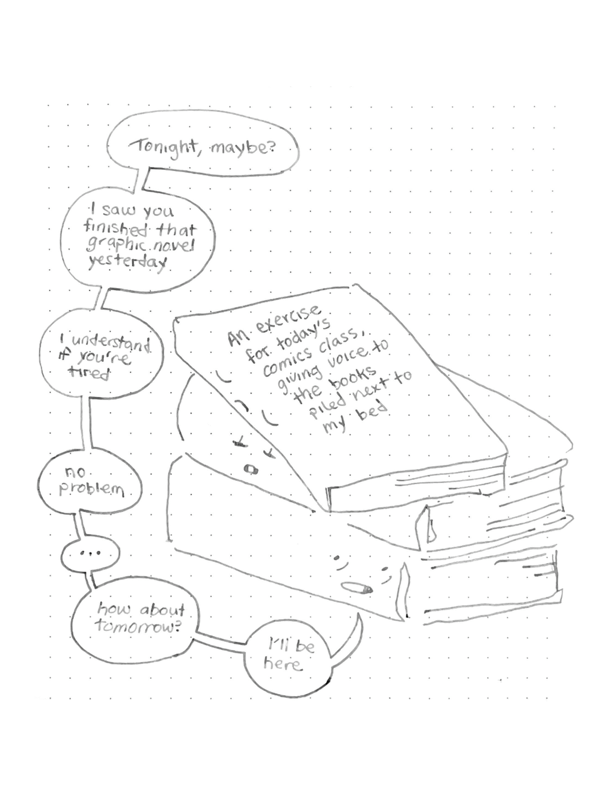 Tonight, maybe?
I saw you
finished that
graphic novel
yesterday
I understand
if you're
tired
no
problem
...
how about
tomorrow?
I'll be
here
An exercise
for today's
comics class,
giving voice to
the books
piled next to
my bed